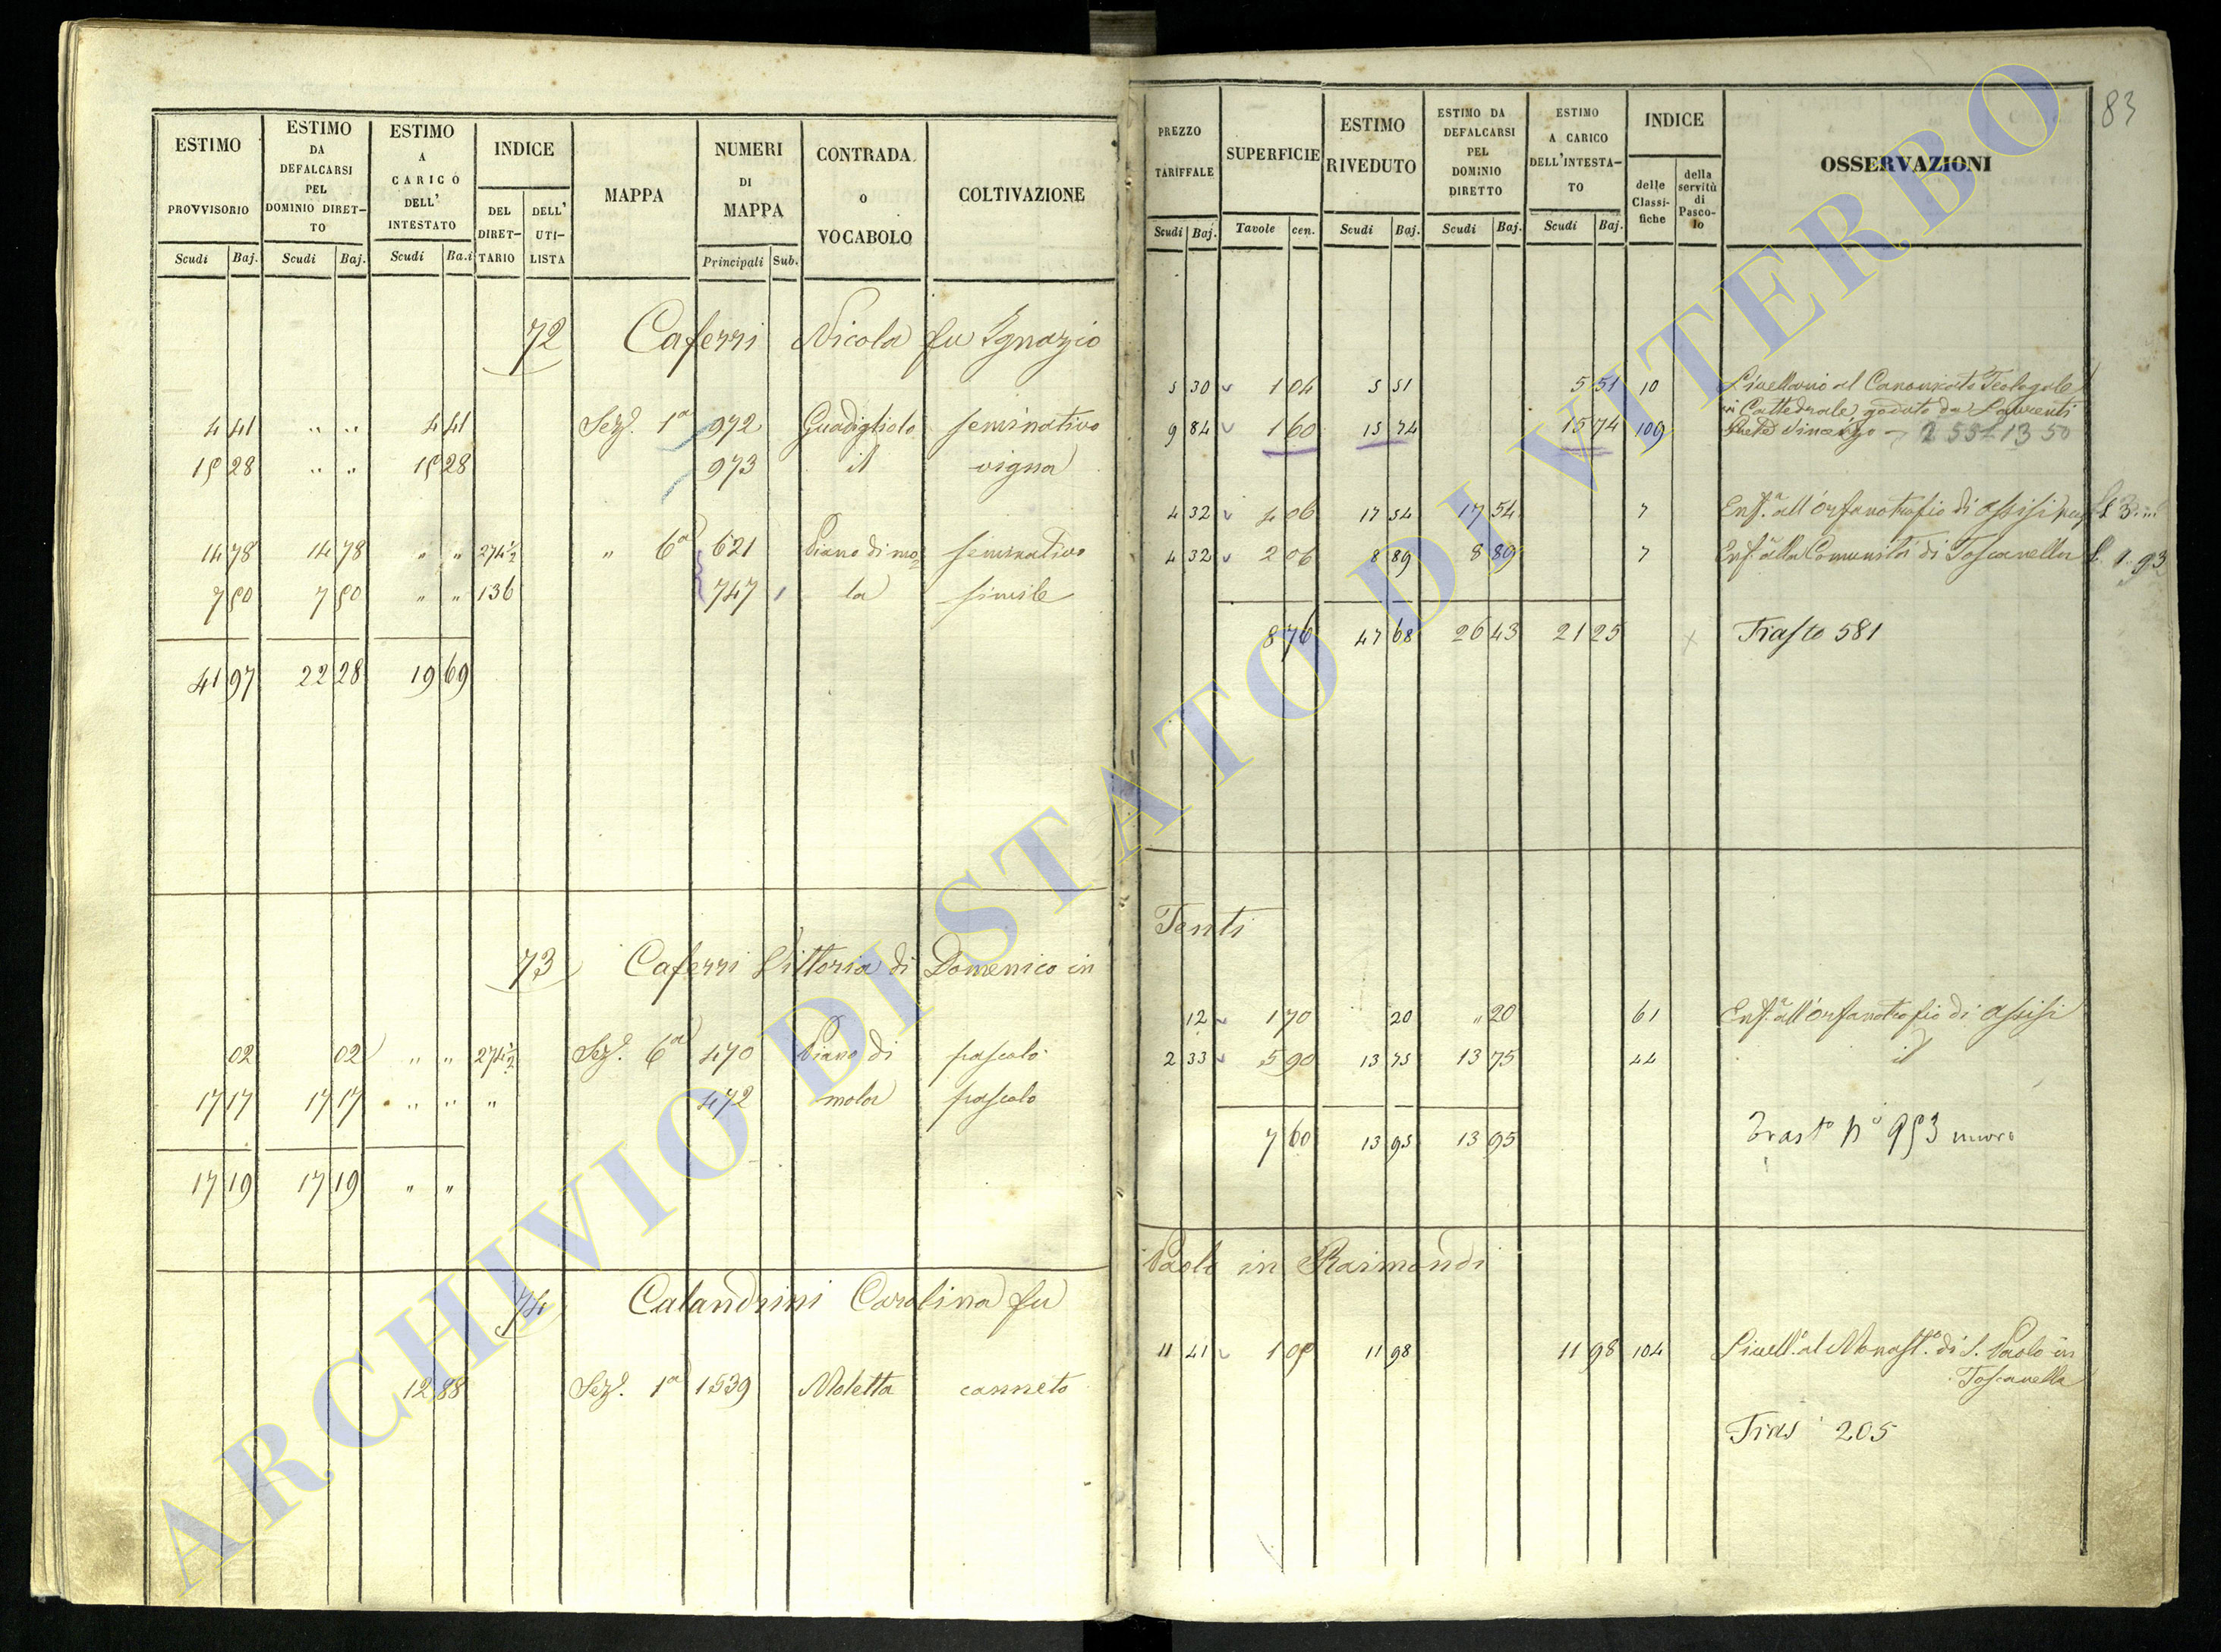 83
ESTIMO PROVVISORIO Scudi Baj.
ESTIMO DA DEFALCARSI PEL DOMINIO DIRET-TO Scudi Baj.
ESTIMO A CARICO DELL' INTESTATO Scudi Ba.i
INDICE DEL DIRET-TARIO DELL' UTI-LISTA
MAPPA
NUMERI DI MAPPA Principali Sub.
CONTRADA o VOCABOLO
COLTIVAZIONE
PREZZO TARIFFALE Scudi Baj.
SUPERFICIE Tavole cen.
ESTIMO RIVEDUTO Scudi Baj.
ESTIMO DA DEFALCARSI PEL DOMINIO DIRETTO Scudi Baj.
ESTIMO A CARICO DELL'INTESTA-TO Scudi Baj.
INDICE delle Classi-fiche della servitù di Pasco-lo
OSSERVAZIONI
72 Caferri Nicola fu Ignazio
4 41 " " 4 41 Sez. 1a 972 Guadigliolo seminativo 5 30 1 04 5 51 5 51 10 Livellario al Canonicato Teologale
in Cattedrale, goduto da Laurenti
15 28 " " 15 28 973 id vigna 9 84 1 60 15 74 15 74 109 Vincenzo
14 78 14 78 " " 274 1/2 " 6a 621 Piano di mo= seminativo 4 32 4 06 17 54 17 54 7 Enf.a all'Orfanotrofio di Assisi
7 50 7 50 " " 136 747 1 la simile 4 32 2 06 8 89 8 89 7 Enf.a alla Comunità di Toscanella 1.93
41 97 22 28 19 69 8 76 47 68 26 43 21 25 x Trasto 581
73 Caferri Vittoria di Domenico in Tenti
02 02 " " 274 1/2 Sez. 6a 470 Piano di pascolo 12 1 70 20 " 20 61 Enf.a all'Orfanotrofio di Assisi
17 17 17 17 " " " 472 mola pascolo 2 33 5 90 13 75 13 75 44 id
17 19 17 19 " " 7 60 13 95 13 95 Trasto No 953
74 Calandrini Carolina fu Paolo in Raimondi
12 88 Sez. 1a 1539 Moletta canneto 11 41 1 05 11 98 11 98 104 Livell.o al Monast.o di S. Paolo in
Toscanella
Tras 205
ARCHIVIO DI STATO DI VITERBO